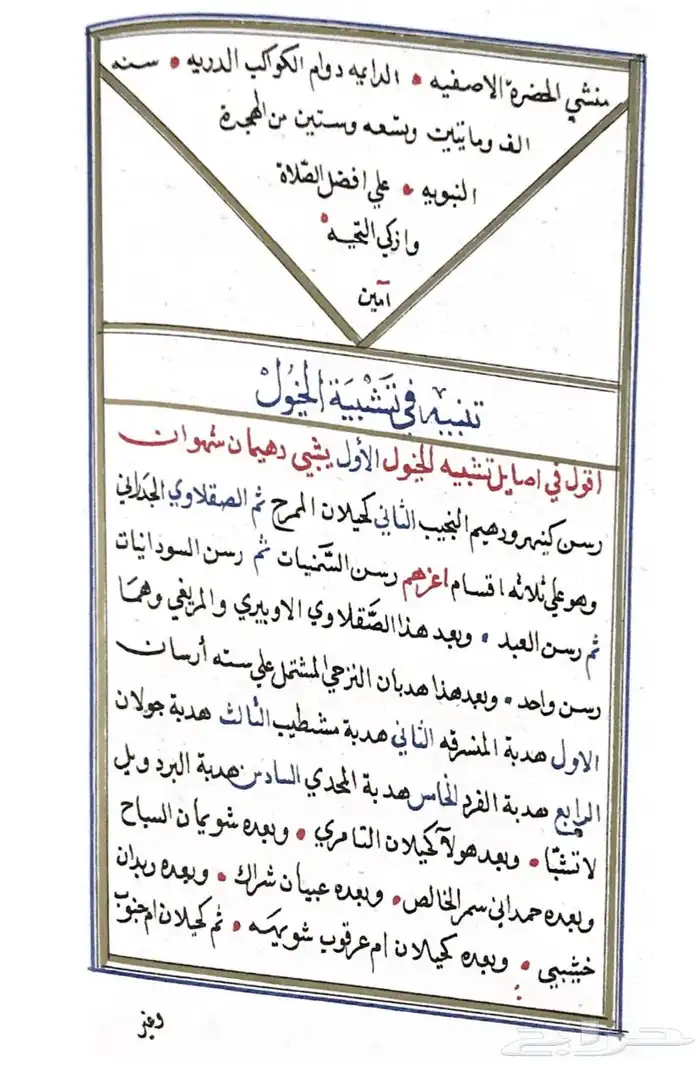 منشي الحضرة الاصفيه • الدايمه دوام الكواكب الدريه • سنه
الف ومايتين وتسعه وستين من الهجرة
النبويه • علي افضل الصّلاة
وازكي التحيه •
آمين
تنبيه في تَشْبِيَة الخيُولْ
اقول في اصايل تشبيه الخيول الأول يشبي دهيمان شهوان
رسن كنيهر ودهيم النجيب الثاني كحيلان الممرح ثم الصقلاوي الجدراني
وهو علي ثلاثه اقسام اعزهم رسن السَّمنيات ثم رسن السودانيات
ثم رسن العبد • وبعد هذا الصَّقلاوي الاوبيري والمريغي وهما
رسن واحد • وبعد هذا هدبان النزحي المشتمل علي سته أرسان
الاول هدبة المنسرقه الثاني هدبة مشطيب الثالث هدبة جولان
الرابع هدبة الفرد الخامس هدبة المحدي السادس هدبة البردويل
لا تشبّا • وبعد هولآ كحيلان التامري • وبعده شويمان السباح
وبعده حمداني سمر الخالص • وبعده عبيان شراك • وبعده ربدان
خيشيبي • وبعده كحيلان ام عرقوب شويهه • ثم كحيلان ام جنوب
حراج